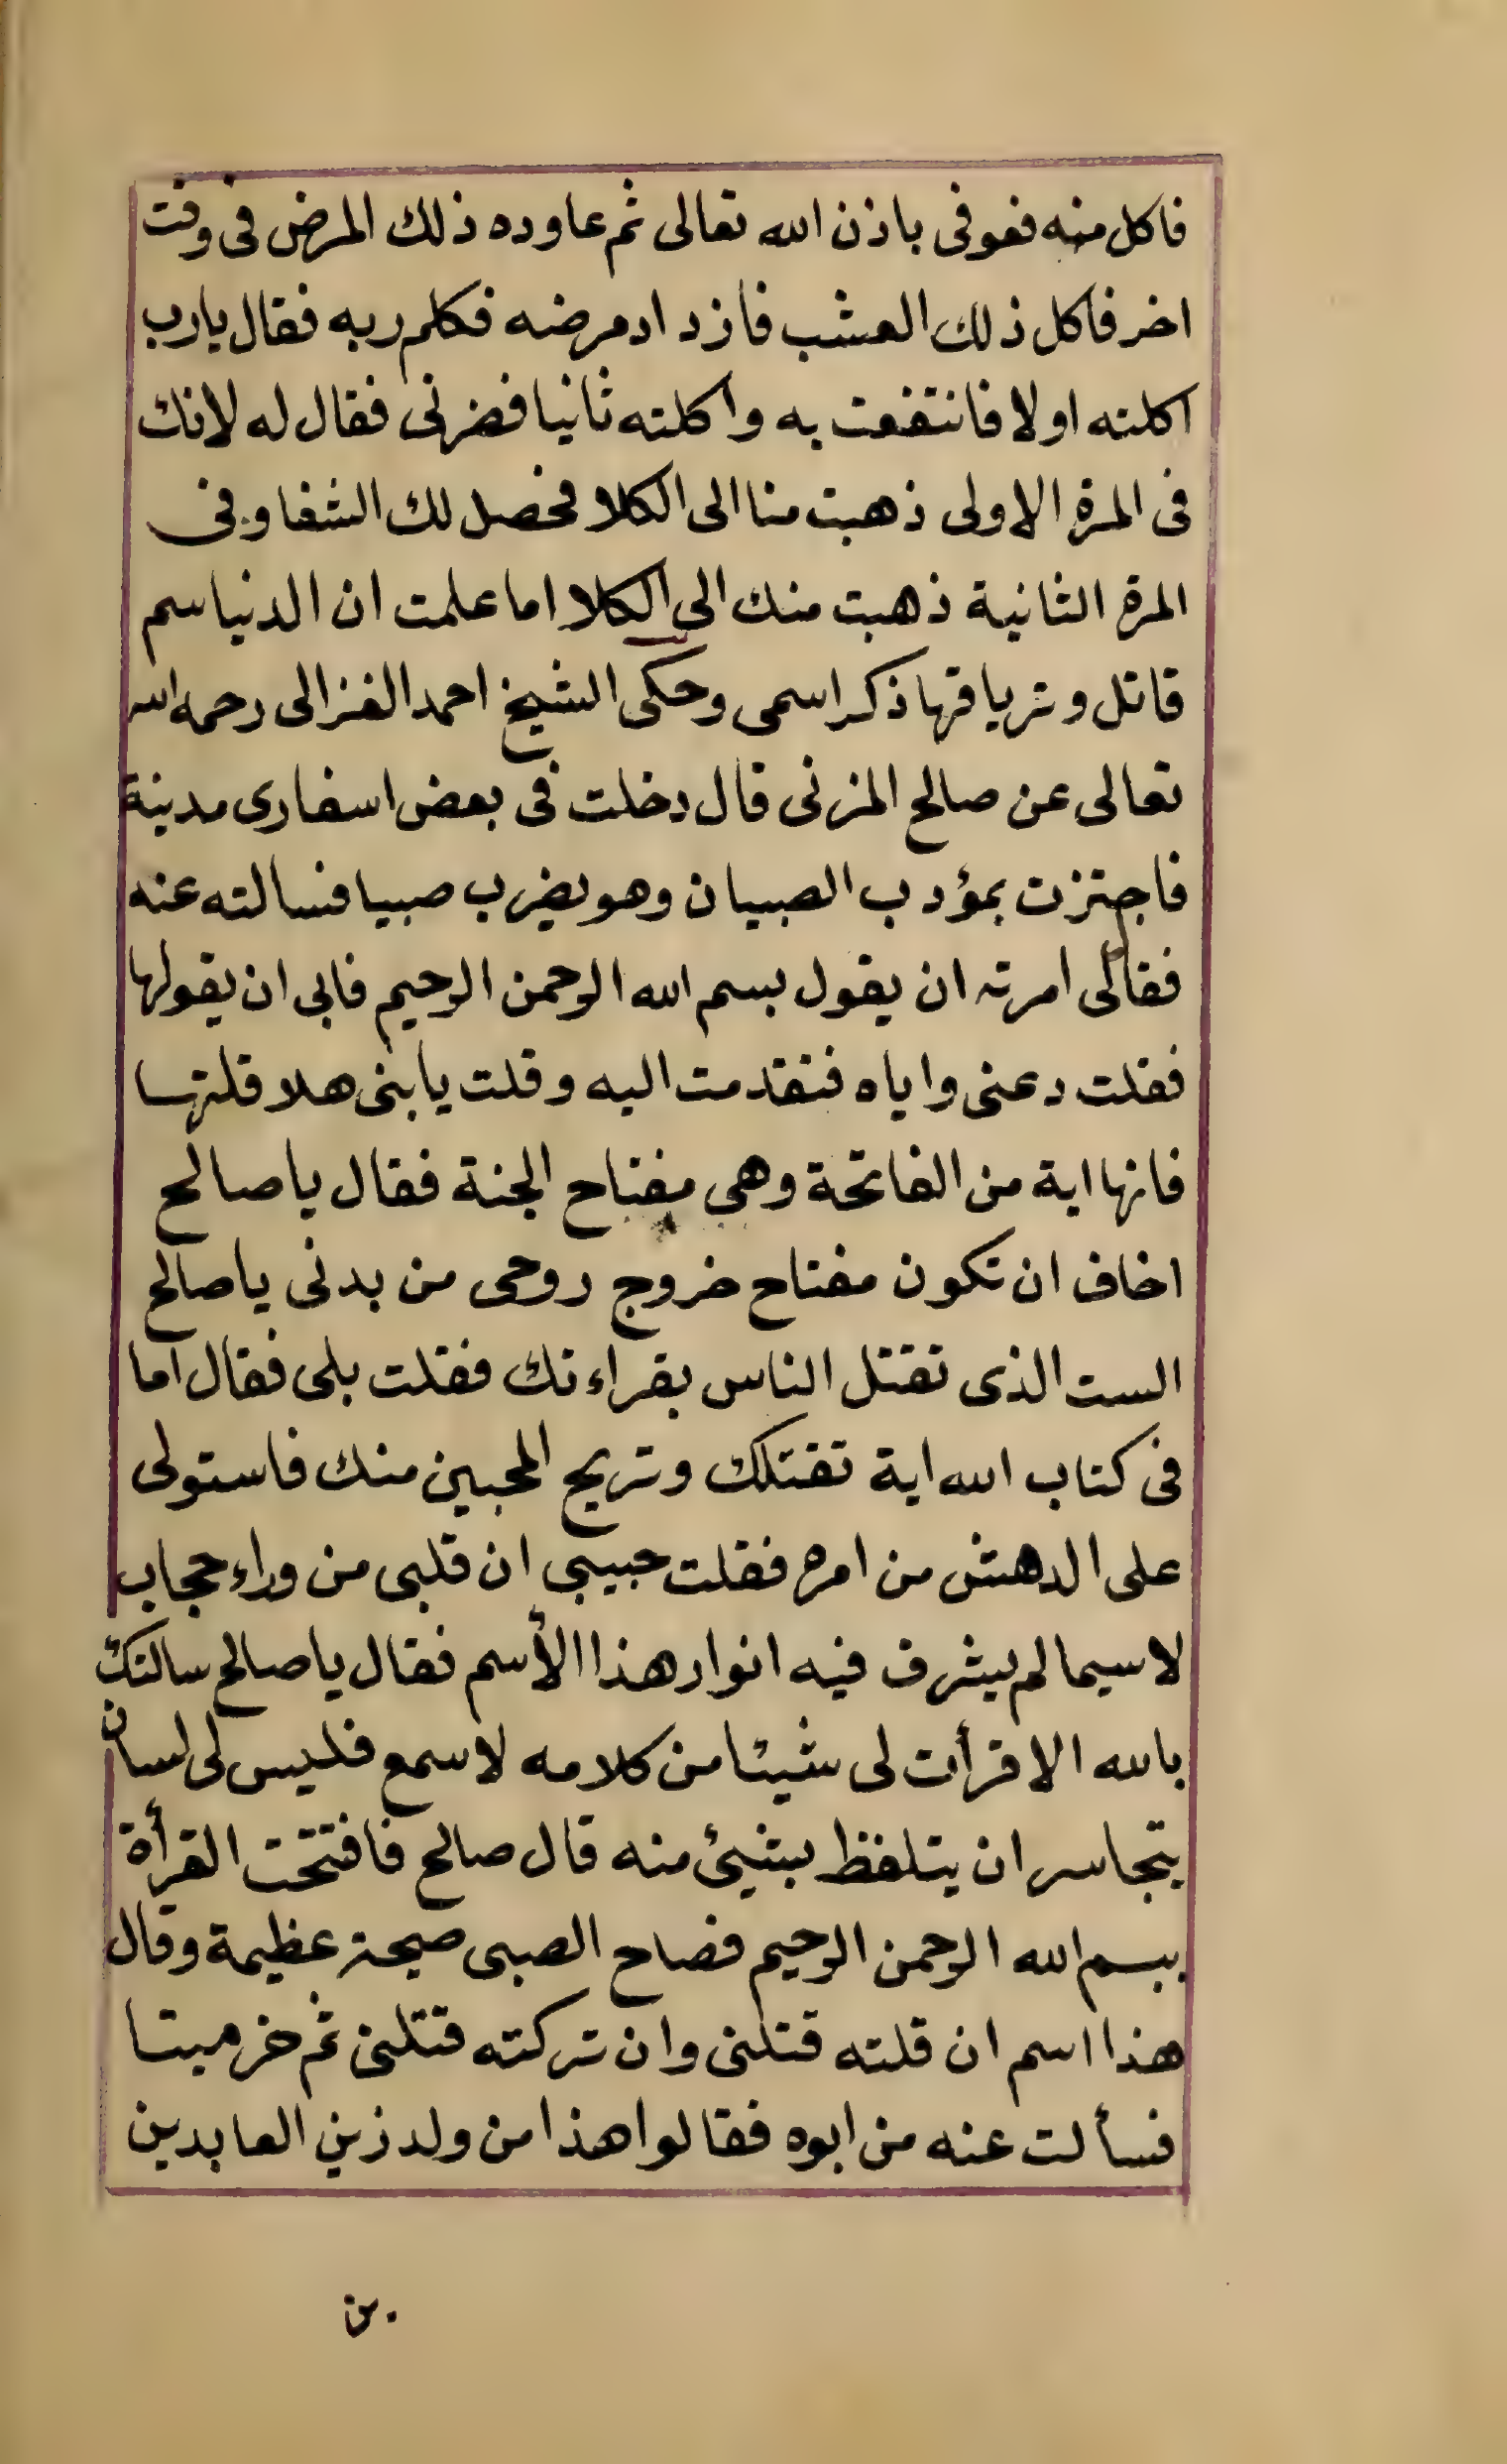 فاكل منه فعوفى باذن الله تعالى ثم عاوده ذلك المرض فى وقت
اخر فاكل ذلك العشب فازداد مرضه فكلم ربه فقال يارب
اكلته اولا فانتفعت به واكلته ثانيا فضرنى فقال له لانك
فى المرة الاولى ذهبت منا الى الكلا فحصل لك الشفا وفى
المرة الثانية ذهبت منك الى الكلا اما علمت ان الدنيا سم
قاتل وترياقها ذكر اسمى وحكى الشيخ احمد الغزالى رحمه الله
تعالى عن صالح المزنى قال دخلت فى بعض اسفارى مدينة
فاجتزت بمؤدب الصبيان وهو يضرب صبيا فسالته عنه
فقال لى امرته ان يقول بسم الله الرحمن الرحيم فابى ان يقولها
فقلت دعنى واياه فتقدمت اليه وقلت يابنى هلا قلتها
فانها اية من الفاتحة وهى مفتاح الجنة فقال يا صالح
اخاف ان تكون مفتاح خروج روحى من بدنى يا صالح
الست الذى تقتل الناس بقراءتك فقلت بلى فقال اما
فى كتاب الله اية تقتلك وتريح المحبين منك فاستولى
على الدهش من امره فقلت حبيبى ان قلبى من وراء حجاب
لا سيما لم يشرق فيه انوار هذا الأسم فقال يا صالح سالتك
بالله الا قرأت لى شيئا من كلامه لاسمع فليس لى لسان
يتجاسر ان يتلفظ بشيئ منه قال صالح فافتتحت القرأة
ببسم الله الرحمن الرحيم فصاح الصبى صيحة عظيمة وقال
هذا اسم ان قلته قتلنى وان تركته قتلنى ثم خر ميتا
فسألت عنه من ابوه فقالوا هذا من ولد زين العابدين
بن